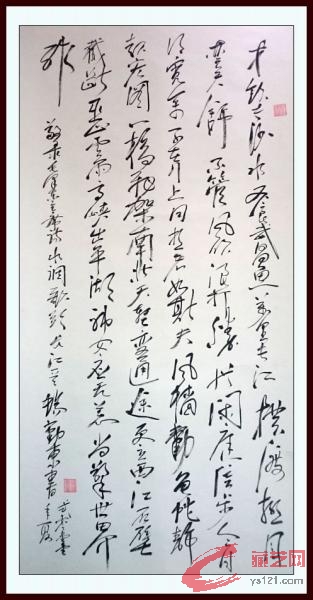 才饮长沙水又食武昌鱼万里长江横渡极目
楚天舒不管风吹浪打胜似闲庭信步今日
得宽余子在川上曰逝者如斯夫风樯动龟蛇静
起宏图一桥飞架南北天堑变通途更立西江石壁
截断巫山云雨高峡出平湖神女应无恙当惊世界
殊
敬录毛泽东主席诗水调歌头长江
藏艺网
ys121.com